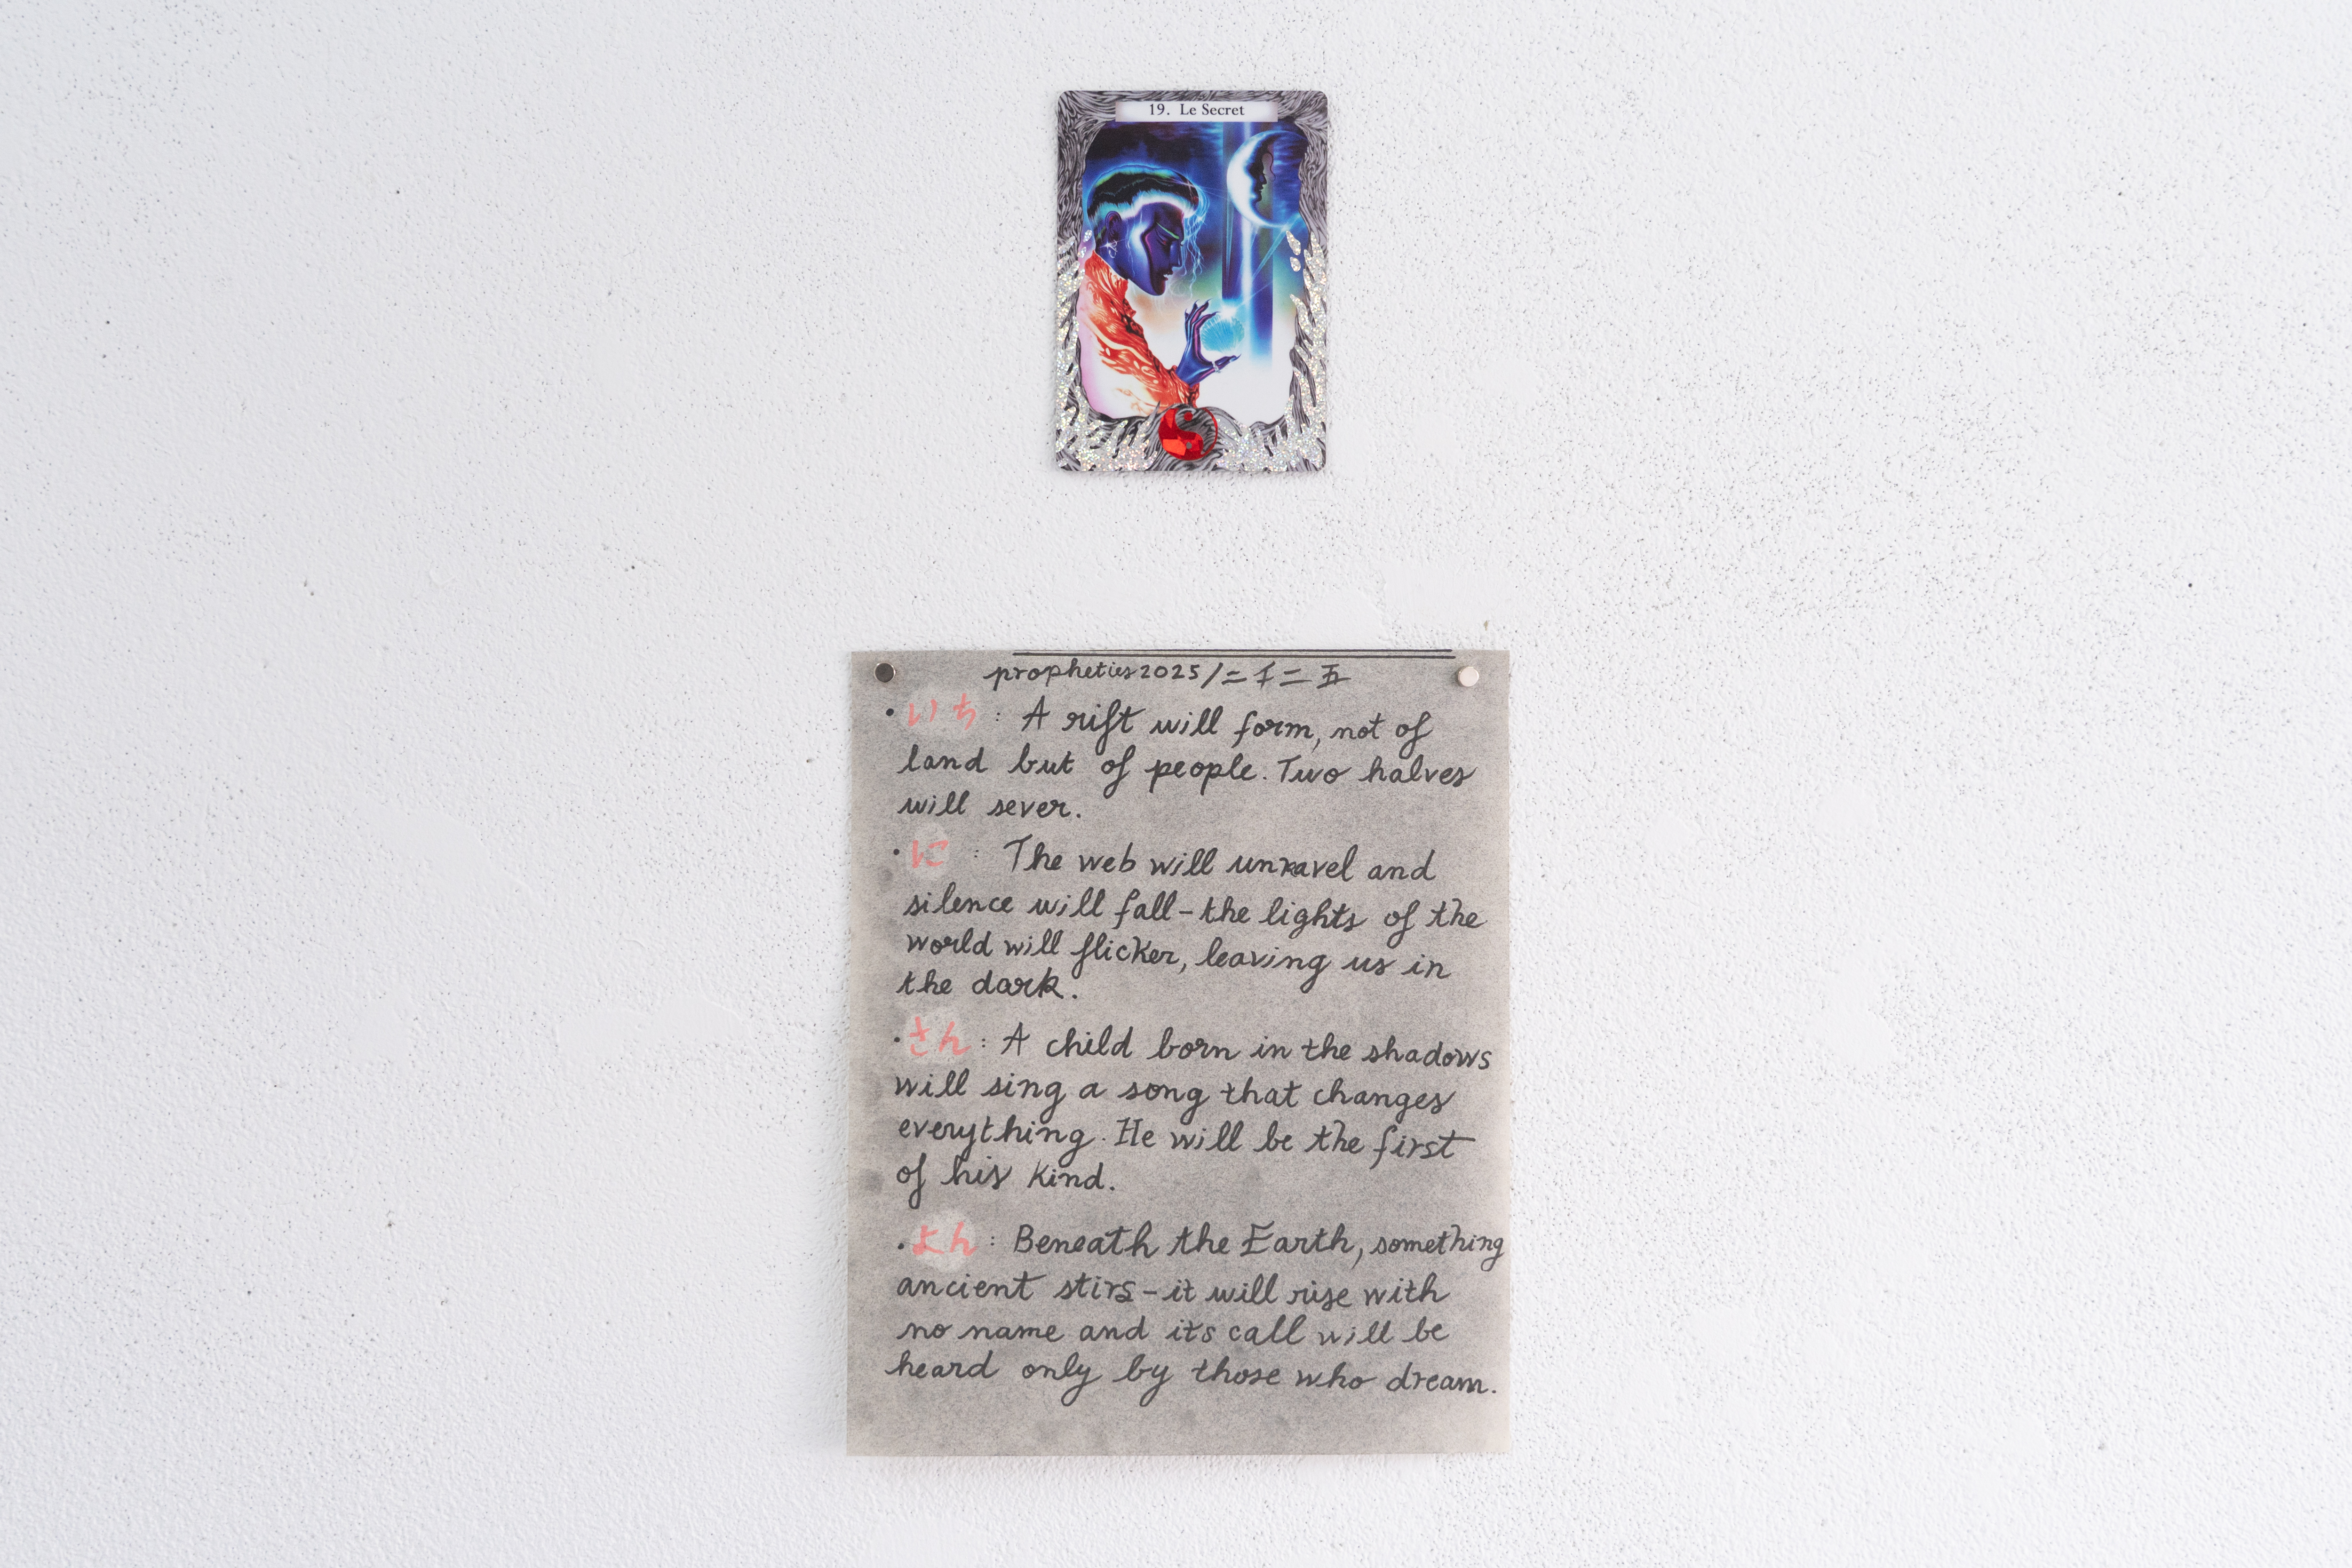 19. Le Secret
propheties2025/二千二五
・いち: A rift will form, not of
land but of people. Two halves
will sever.
・に : The web will unravel and
silence will fall-the lights of the
world will flicker, leaving us in
the dark.
・さん: A child born in the shadows
will sing a song that changes
everything. He will be the first
of his kind.
・よん: Beneath the Earth, something
ancient stirs-it will rise with
no name and its call will be
heard only by those who dream.